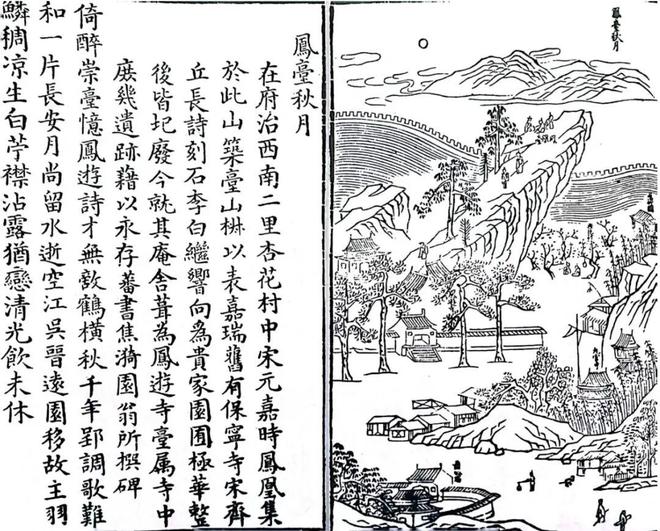 鳳臺秋月
鳳臺秋月
在府治西南二里杏花村中宋元嘉時鳳凰集
於此山築臺山椒以表嘉瑞舊有保寧寺宋齊
丘長詩刻石李白繼響向為貴家園囿極華整
後皆圮廢今就其庵舍葺為鳳遊寺臺属寺中
庶幾遺跡藉以永存蕃書焦漪園翁所撰碑
倚醉崇臺憶鳳遊詩才無敵鶴橫秋千年郢調歌難
和一片長安月尚留水逝空江吳晉遠園移故主羽
鱗稠凉生白苧襟沾露猶戀清光飲未休